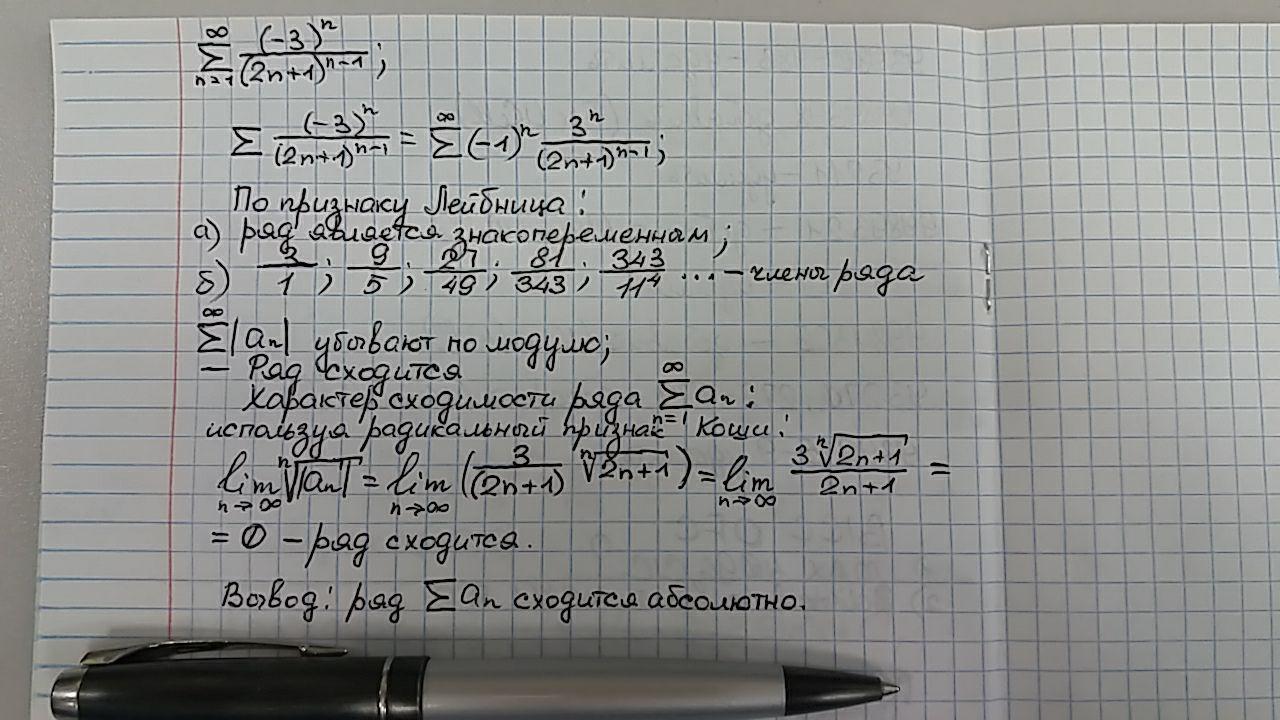 ∑_{n=1}^{∞} (-3)^n / (2n+1)^{n-1} ;
∑ (-3)^n / (2n+1)^{n-1} = ∑^{∞} (-1)^n 3^n / (2n+1)^{n-1} ;
По признаку Лейбница:
а) ряд является знакопеременным;
б) 3/1 ; 9/5 ; 27/49 ; 81/343 ; 343/11^4 ... – члены ряда
∑^{∞} |a_n| убывают по модулю;
— Ряд сходится
Характер сходимости ряда ∑_{n=1}^{∞} a_n :
используя радикальный признак Коши:
lim_{n→∞} ⁿ√|a_n| = lim_{n→∞} (3/(2n+1) ⁿ√(2n+1)) = lim_{n→∞} 3 ⁿ√(2n+1) / (2n+1) =
= 0 – ряд сходится.
Вывод: ряд ∑ a_n сходится абсолютно.